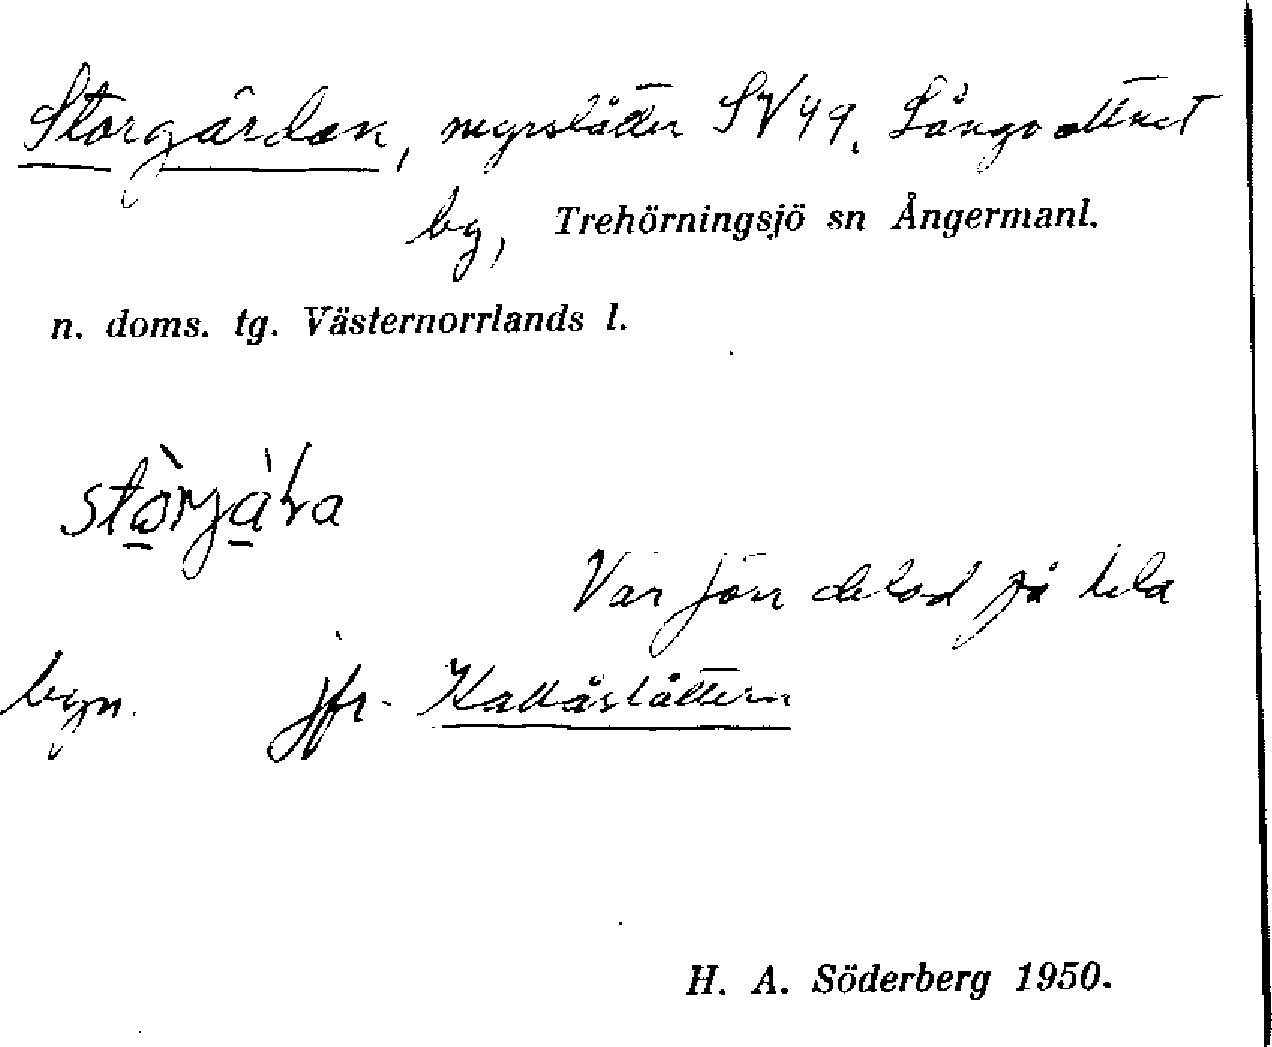 Storgärdan, myrslåtter SV49. Långvattnet
by, Trehörningsjö sn Ångermanl.
n. doms. tg. Västernorrlands l.
Var förr delad på hela
byn. jfr. Kallåslåttern
H. A. Söderberg 1950.